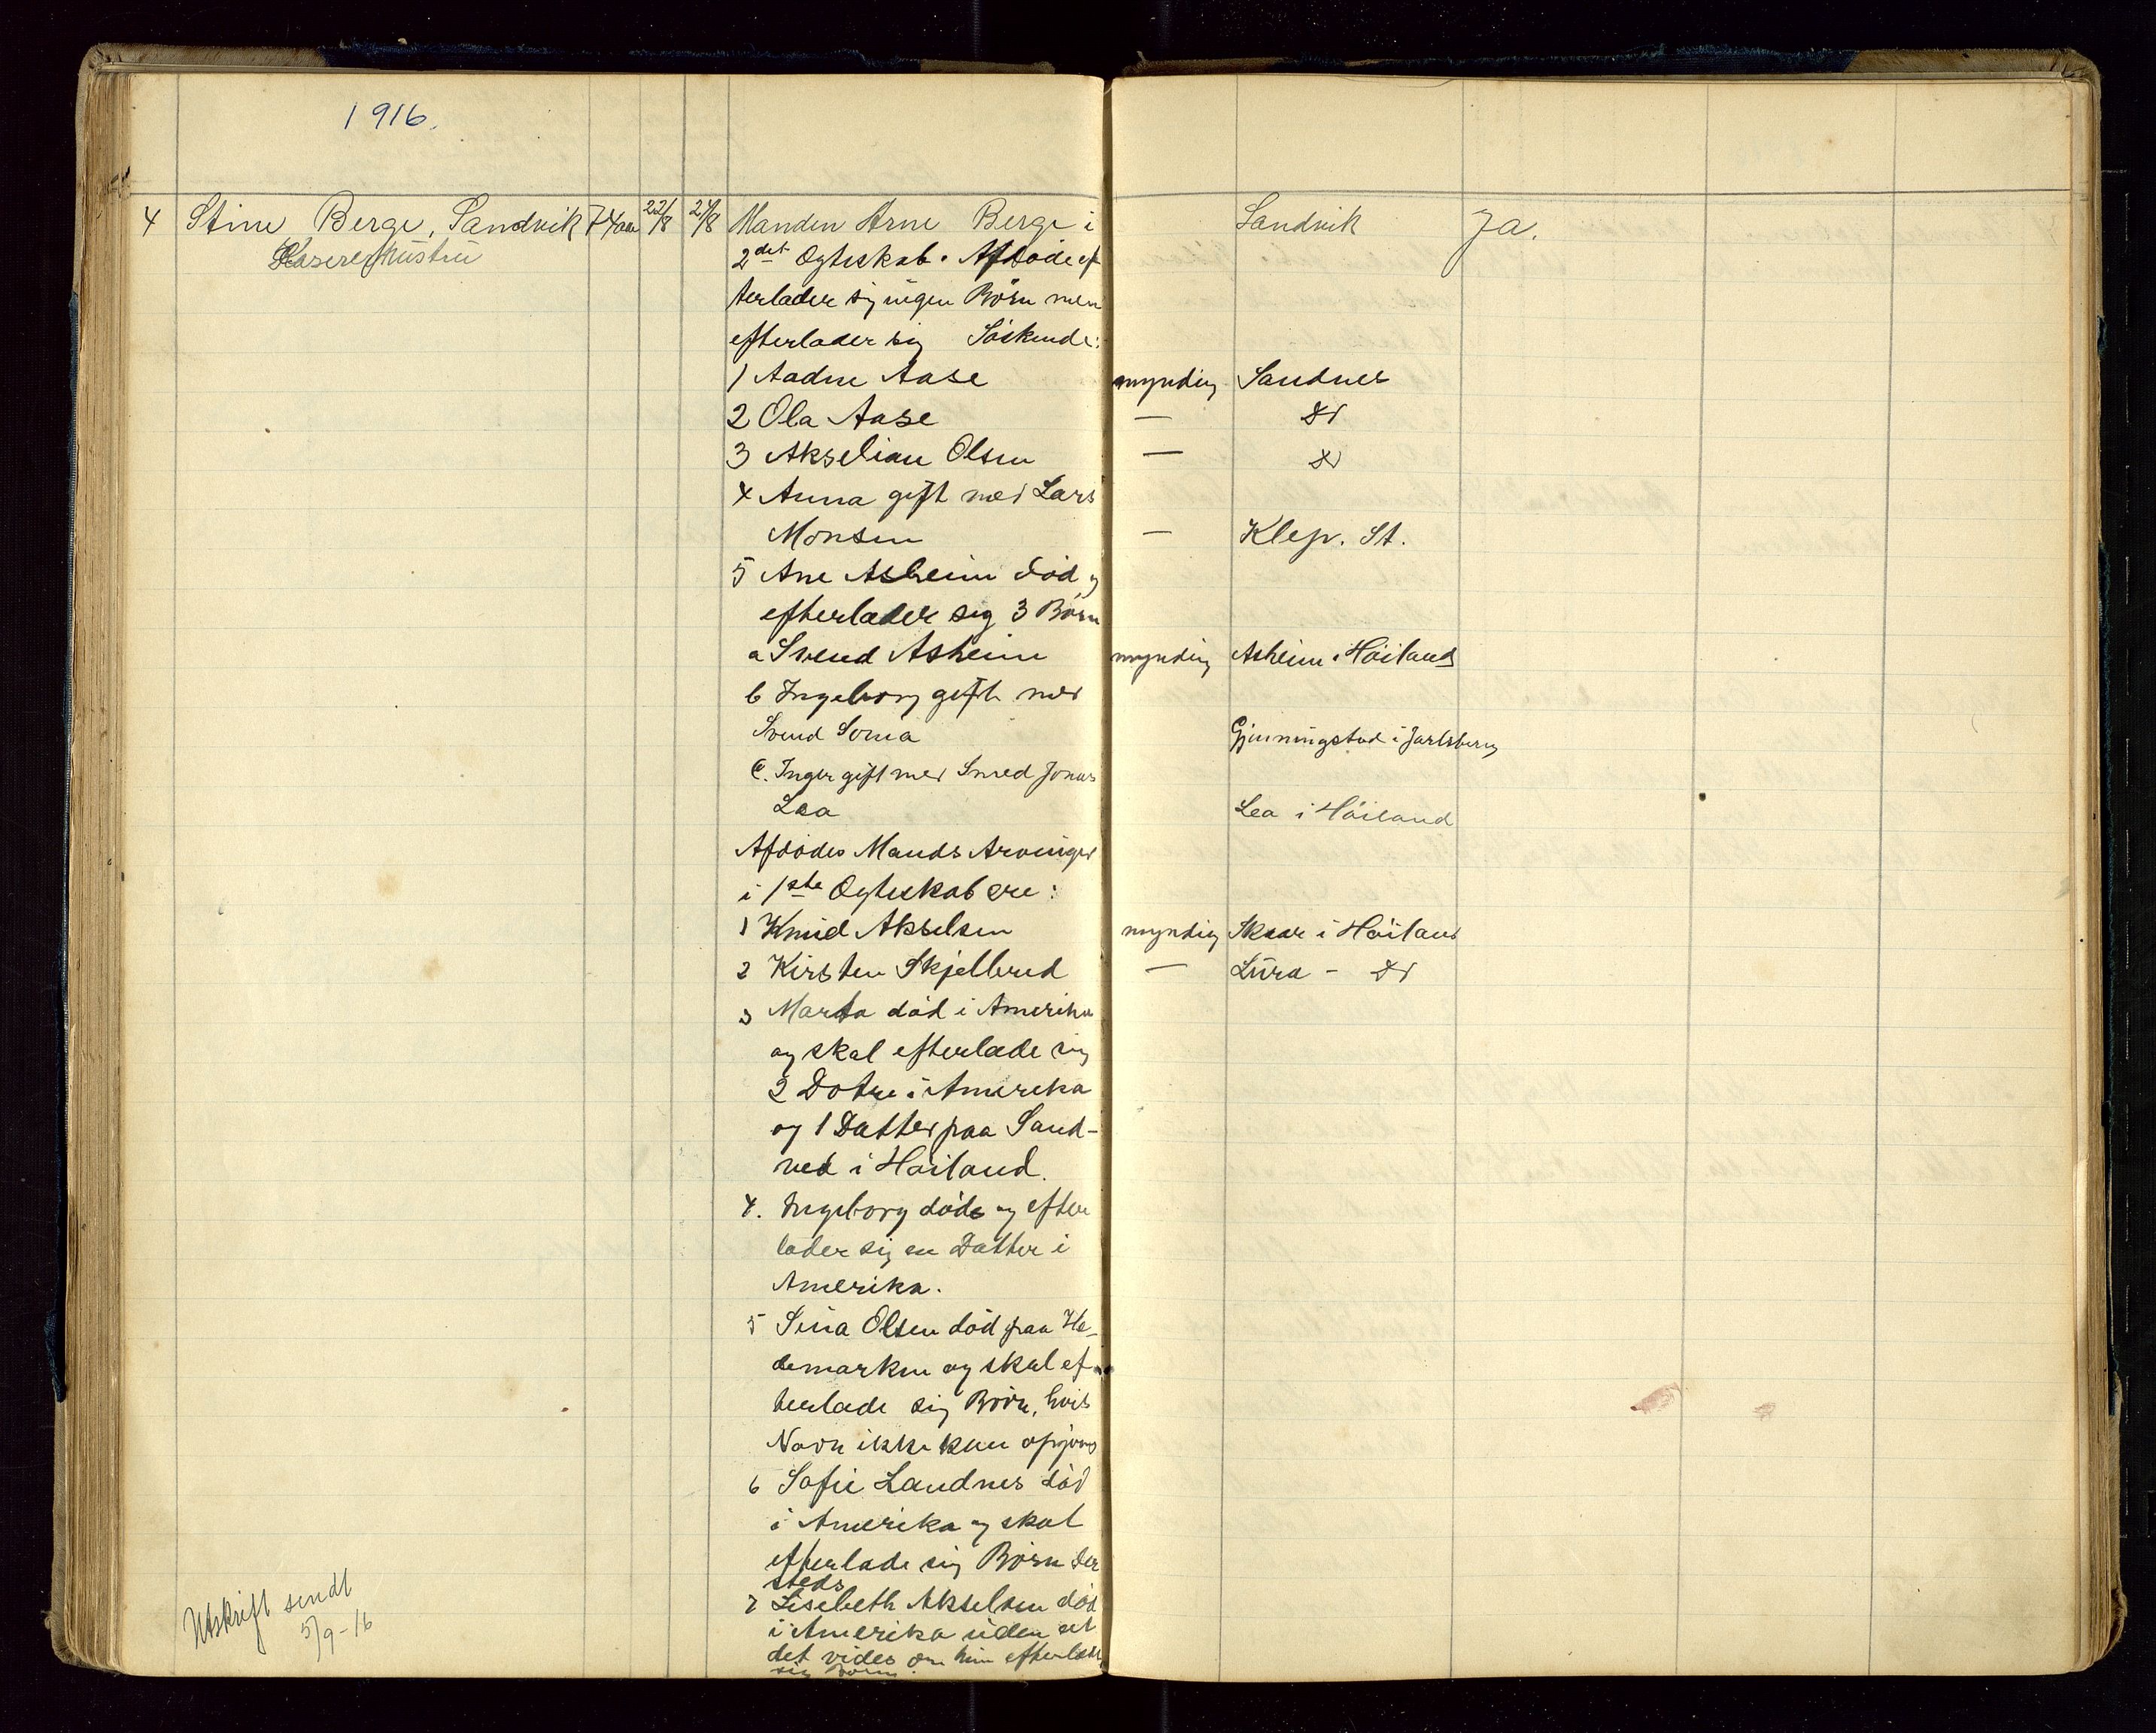 1916.
4 Stine Berge, Sandvik 74 aar 22/8 24/8 Manden Arne Berge i Sandvik Ja.
2det Ogteskab. Afdøde ef
terlader sig ingen Børn men
efterlader sig Søskende:
1 Aadne Aase myndig Sandnes
2 Ola Aase — Do
3 Akseliane Olsen — Do
4 Anna gift med Lars
Monsen — Klep. St.
5 Ane Asheim død og
efterlader sig 3 Børn
a Svend Asheim myndig Asheim i Høiland
b Ingeborg gift med
Svend Soma Gjenningstad i Jarlsberg
c. Inger gift med Smed Jonas
Lea Lea i Høiland
Afdødes Mands Arvinger
i 1ste Ogteskab ere:
1 Knud Akselsen myndig Skaar i Høiland
2 Kirsten Skjelbred — Lura - Do
3 Marta død i Amerika
og skal efterlade sig
2 Døtre i Amerika
og 1 Datter paa Sand-
ved i Høiland.
4. Ingeborg døde og efter
lader sig en Datter i
Amerika.
5 Sina Olsen død paa He-
demarken og skal ef-
terlade sig Børn, hvis
Navn ikke kan opgives
6 Sofie Landnes død
i Amerika og skal
efterlade sig Børn der
steds
7 Lisebeth Akselsen død
i Amerika uden at
det vides om hun efterlader
sig Børn.
Utskrift sendt
5/9-16